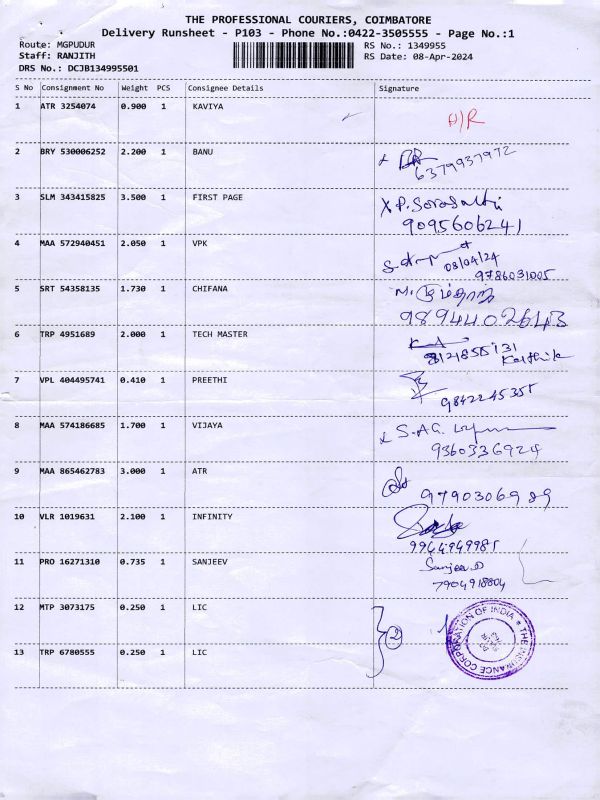 THE PROFESSIONAL COURIERS, COIMBATORE
Delivery Runsheet - P103 - Phone No.:0422-3505555 - Page No.:1
Route: MGPUDUR
Staff: RANJITH
DRS No.: DCJB134995501
RS No.: 1349955
RS Date: 08-Apr-2024
S No Consignment No Weight PCS Consignee Details Signature
1 ATR 3254074 0.900 1 KAVIYA
2 BRY 530006252 2.200 1 BANU
6379937972
3 SLM 343415825 3.500 1 FIRST PAGE
9095606241
4 MAA 572940451 2.050 1 VPK
08/04/24
9786031005
5 SRT 54358135 1.730 1 CHIFANA
9894402643
6 TRP 4951689 2.000 1 TECH MASTER
Karthik
7 VPL 404495741 0.410 1 PREETHI
9842245355
8 MAA 574186685 1.700 1 VIJAYA
9360336924
9 MAA 865462783 3.000 1 ATR
9790306989
10 VLR 1019631 2.100 1 INFINITY
9944949985
11 PRO 16271310 0.735 1 SANJEEV
Sanjeev.D
7904918804
12 MTP 3073175 0.250 1 LIC
2
THE INSURANCE CORPORATION OF INDIA
13 TRP 6780555 0.250 1 LIC